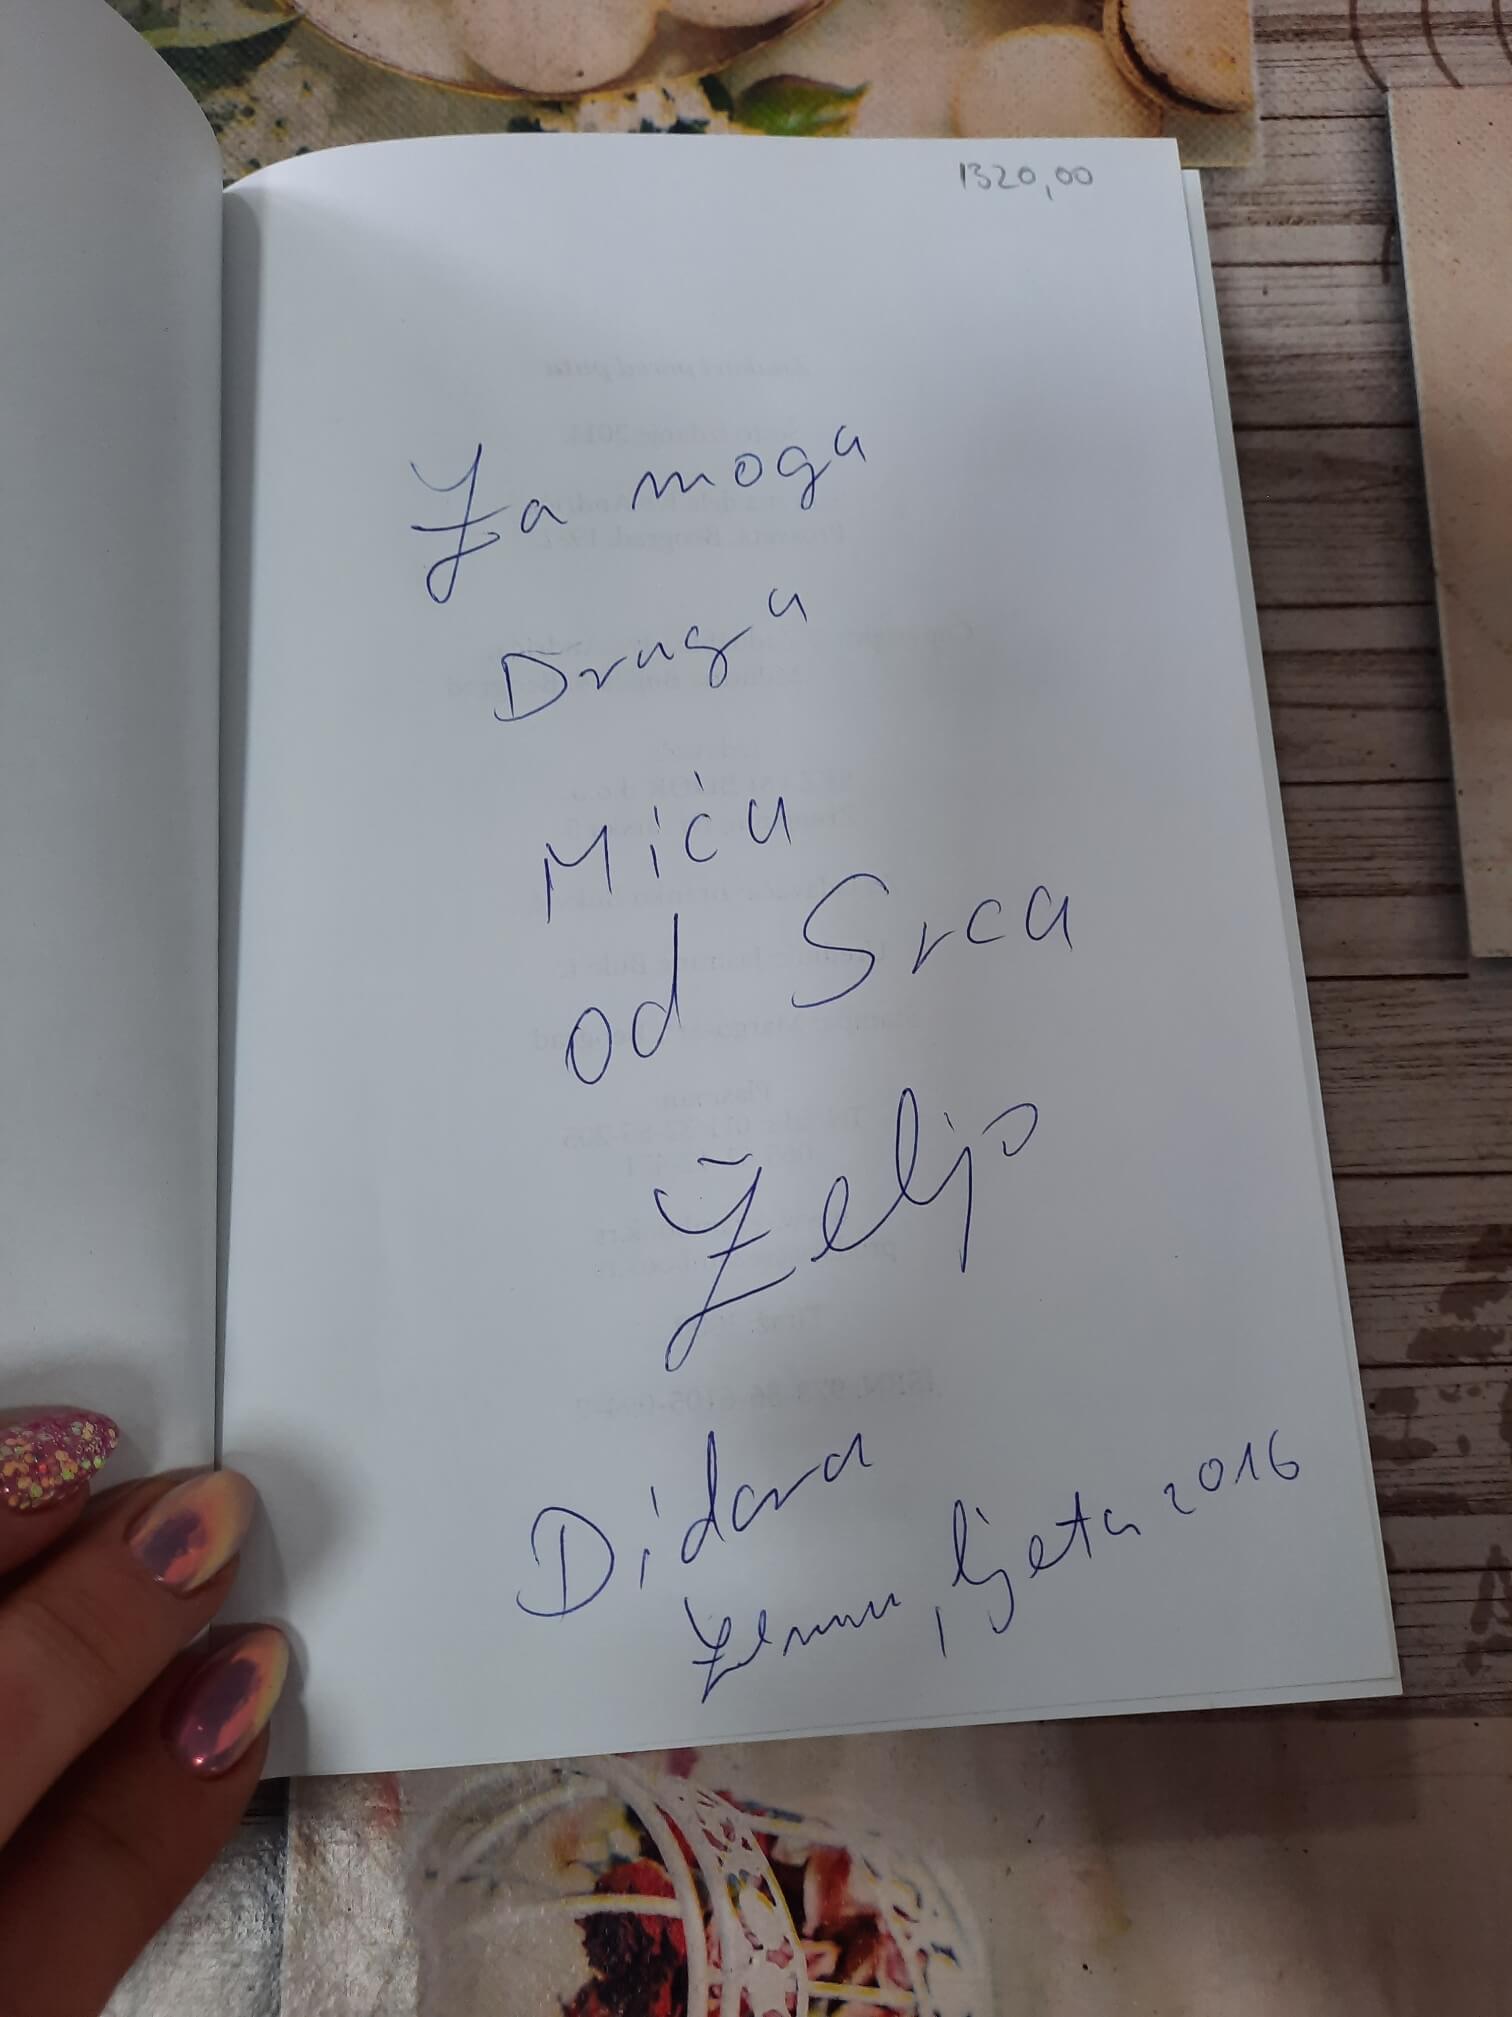 1320,00
Za moga
Druga
Mića
od Srca
Željo
Didara
Zemun, ljeta 2016